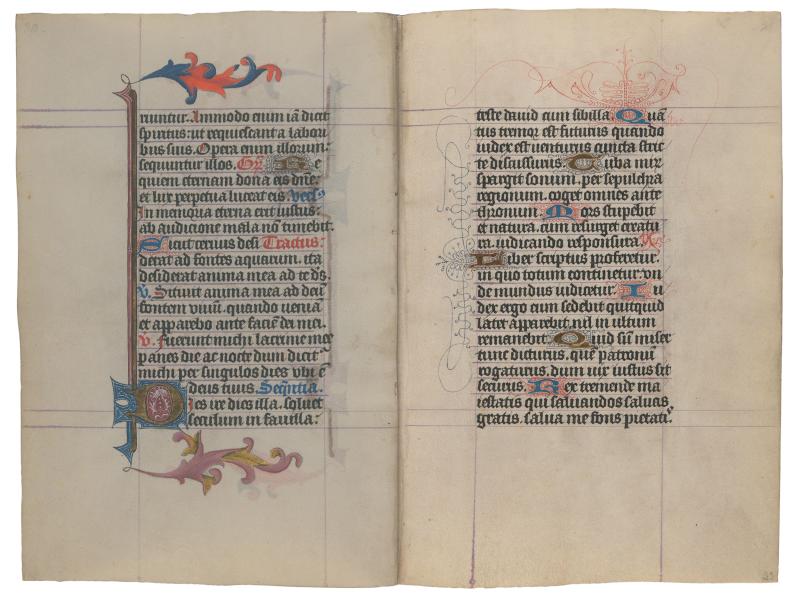 runtur. Ammodo enim iā dicit
spiritus: ut requiescant a labori
bus suis. Opera enim illorum:
sequuntur illos. Gr̄. Re
quiem eternam dona eis dn̄e:
et lux perpetua luceat eis. vers9
In memoria eterna erit iustus:
ab audicione mala nō timebit.
Sicut cervus desi Tractus:
derat ad fontes aquarum. ita
desiderat anima mea ad te ds̄.
v. Sitivit anima mea ad deū
fontem vivū. quando veniā
et apparebo ante faciē dei mei.
v. fuerunt michi lacrime mee
panes die ac nocte dum dicit᷑
michi per singulos dies vbi ē
deus tuus. Seqn̄tia.
Dies ire dies illa. solvet
seculum in favilla:
teste david cum sibilla. Quā
tus tremor est futurus quando
iudex est venturus cuncta stric
te discussurus. Tuba mir
spargit sonum. per sepulchra
regionum. coget omnes ante
thronum. Mors stupebit
et natura. cum resurget creatu
ra. iudicando responsura.
Liber scriptus proferetur.
in quo totum continetur. vn
de mundus iudicetur. Iu
dex ergo cum sedebit quitquid
latet apparebit. nil in ultum
remanebit. Quid sū miser
tunc dicturus. quē patronū
rogaturus. dum vix iustus sit
securus. Rex tremende ma
iestatis qui salvandos salvas
gratis. salva me fons pietati9